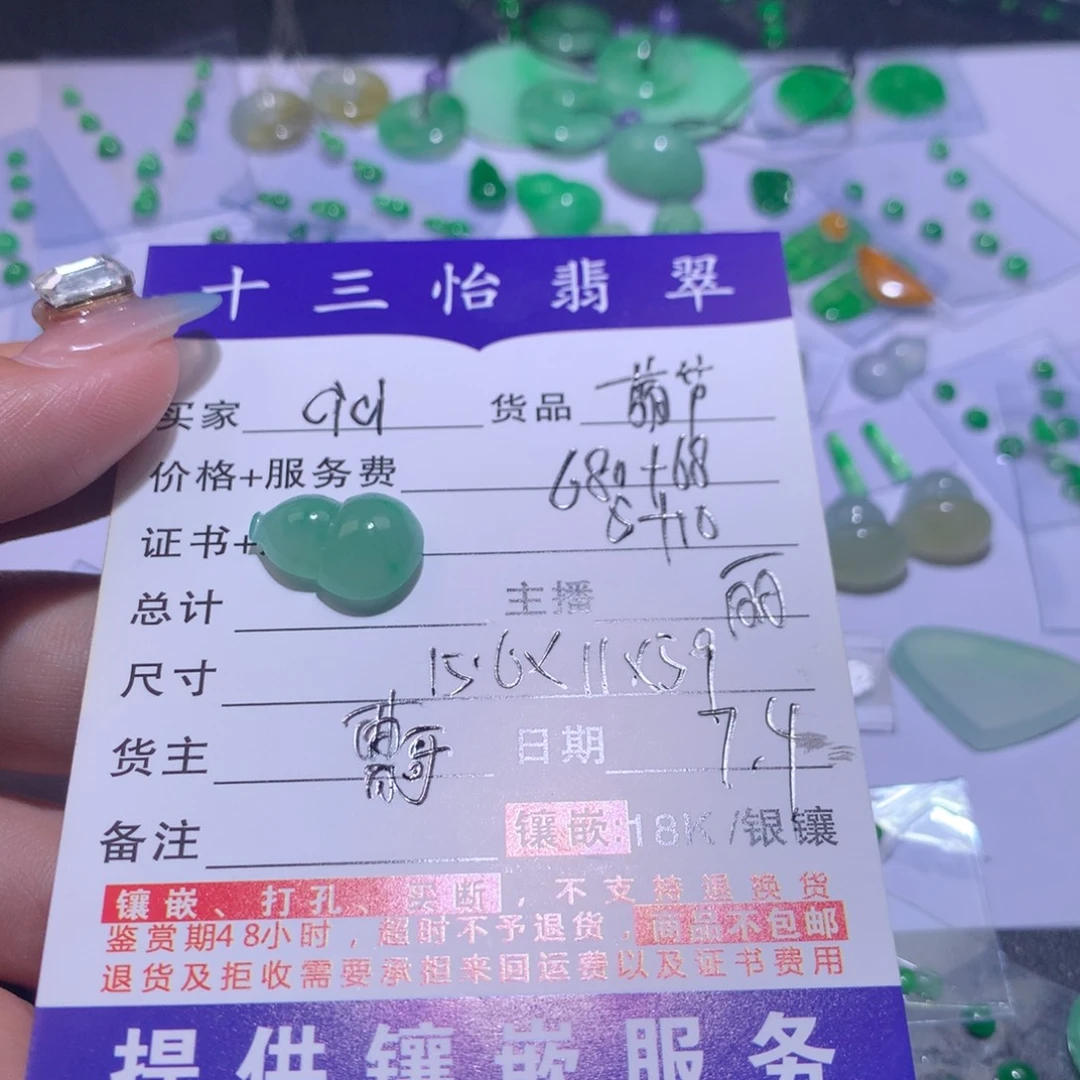 十三怡翡翠
买家 货品 葫芦
价格+服务费 680+68
证书+ 8+10
总计 主播 丽
尺寸 15.6X11X59
货主 哥 日期 7.4
备注 镶嵌:18K/银镶
镶嵌、打孔、买断,不支持退换货
鉴赏期48小时,超时不予退货,商品不包邮
退货及拒收需要承担来回运费以及证书费用
提供镶嵌服务